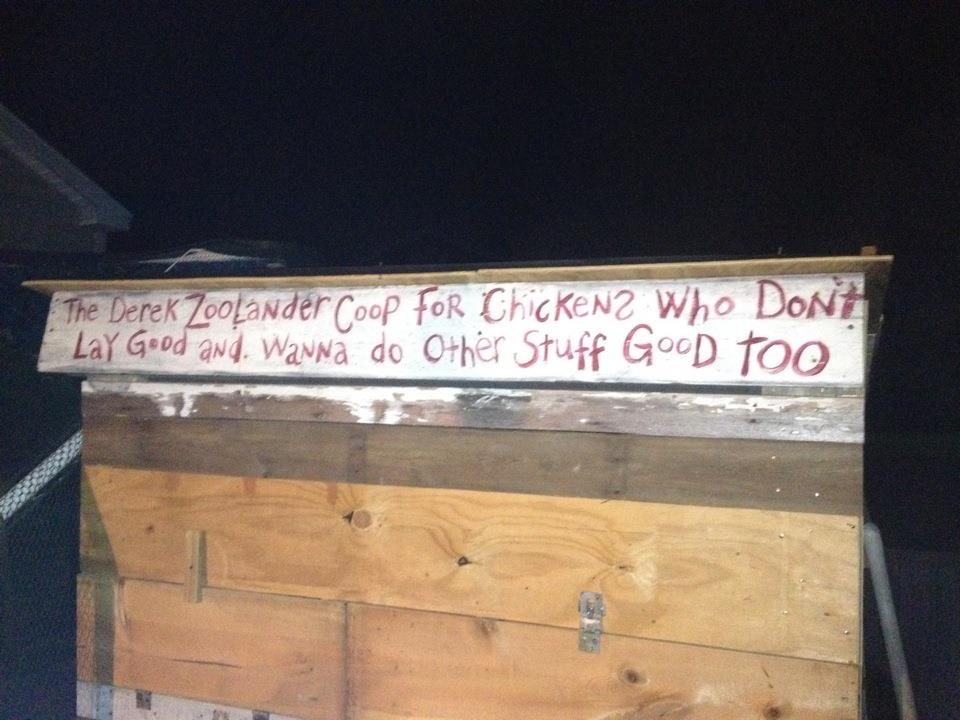 The Derek Zoolander Coop FOR Chickens Who DON't
Lay Good and. wanna do Other Stuff GooD TOO